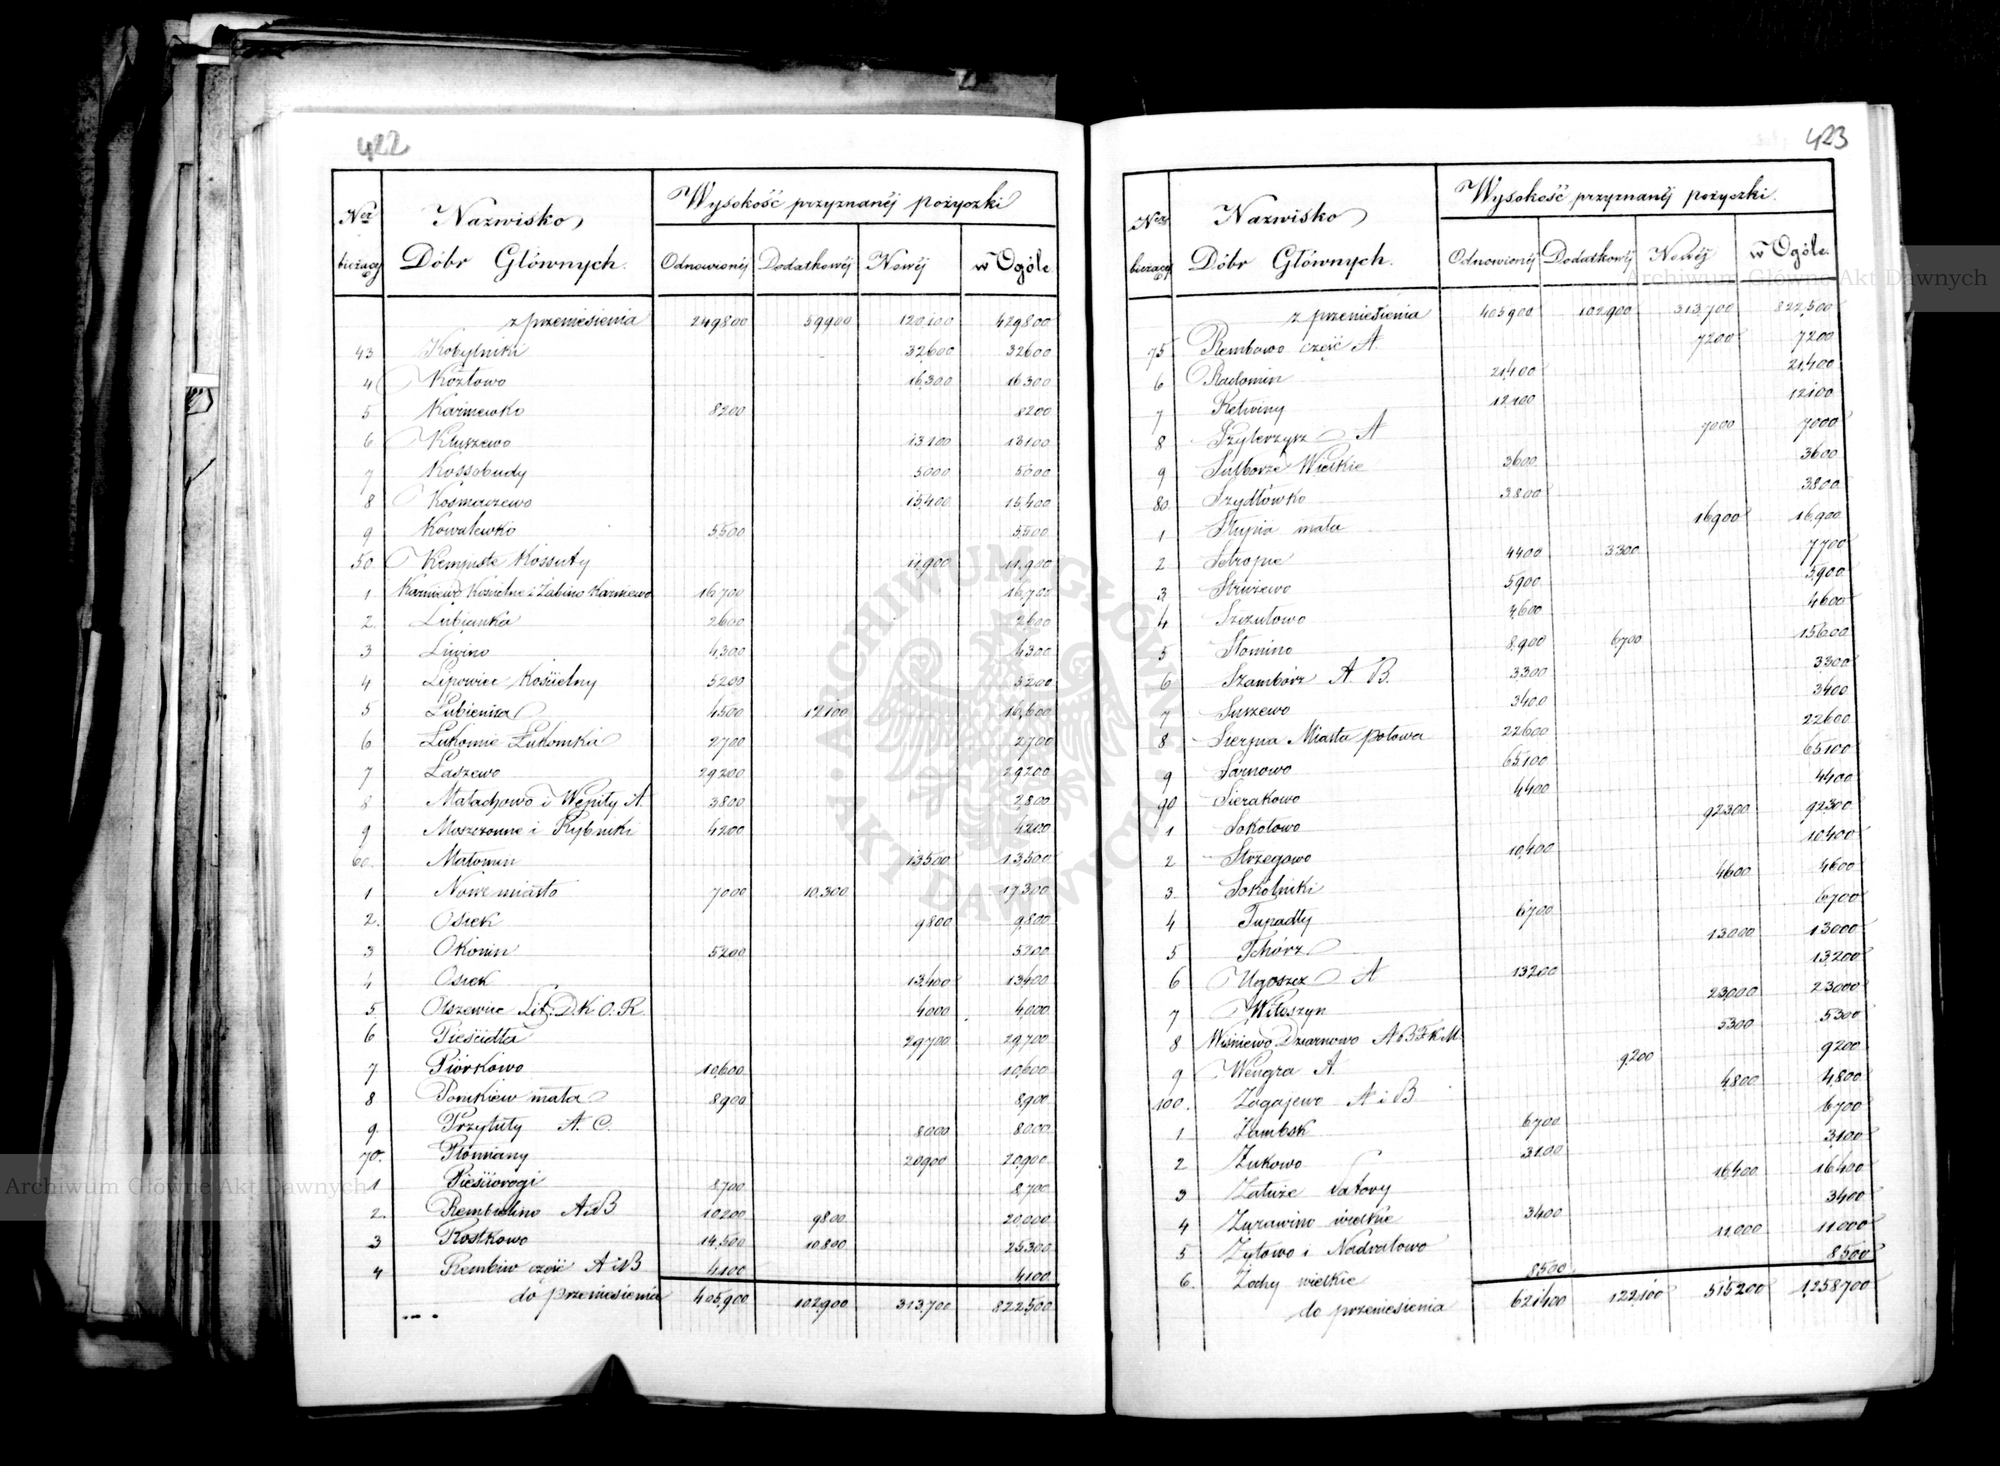 422
Nr bieżący
Nazwisko Dóbr Głównych.
Wysokość przyznanéj pożyczki
Odnowionéj Dodatkowéj Nowéj w Ogóle
z przeniesienia 249800 59900 120,100 429800
43 Kobylniki 32,600 32600
4 Kozłowo 16,300 16300
5 Karniewko 8200 8200
6 Kluszewo 13100 13100
7 Kossobudy 5000 5000
8 Kosmaczewo 15,400 15,400
9 Kowalewko 5,500 5,500
50 Kempiste Kossuty 11,900 11,900
1 Karniewo Kościelne i Żabino Karniewo 16,700 16,700
2. Lubianka 2600 2600
3 Liwino 4,300 4300
4 Lipowiec Kościelny 5200 5200
5 Lubienica 4500 12100 16,600
6 Łukomie Łukomka 2700 2700
7 Łaszewo 29200 29200
8 Małachowo i Wępiły A. 3800 3,800
9 Moszczonne i Rybniki 4200 4200
60. Malomin 13500 13,500
1 Nowe miasto 7000 10,300 17,300
2. Osiek 9800 9,800
3 Okonin 5200 5200
4 Osiek 13,400 13400
5. Olszewiec Lit. D. K. O. R. 4000 4,000
6 Pieścidła 29700 29,700
7 Piórkowo 10,600 10,600
8 Pomkiew mała 8,900 8,900
9. Przytuły A. C. 8000 8000
70. Płoniany 20900 20,900
1 Pieścirogi 8,700 8,700
2. Rembielino A i B 10200 9800 20,000
3 Rostkowo 14,500 10,800 25300
4 Rembiw część A i B 4100 4100
do przeniesienia 405,900 102,900 313,700 822500
423
Nr bieżący
Nazwisko Dóbr Głównych.
Wysokość przyznanéj pożyczki.
Odnowionéj Dodatkowéj Nowéj w Ogóle.
z przeniesienia 405900 102900 313,700 822,500
75 Rembowo część A. 7200 7200
6 Radomin 21,400 21,400
7 Retwiny 12,100 12100
8 Przyborzysz A 7000 7000
9 Sulborze Wielkie 3600 3600
80. Szydłówko 3800 3800
1 Słupia mała 16900 16,900
2 Setropie 4400 3300 7700
3. Struzewo 5900 5,900
4 Szczutowo 4,600 4600
5 Słomino 8,900 6700 15600
6 Szambórz A. B. 3300 3300
7 Suszewo 3400 3400
8 Sierpca Miasta połowa 22600 22600
9 Sarnowo 65,100 65100
90 Sierakowo 4400 4400
1 Sokołowo 92300 92,300
2 Strzegowo 10,400 10400
3. Sokolniki 4600 4600
4 Tupadły 6700 6700
5 Tchórz 13000 13000
6 Ugoszcz A 13200 13,200
7 Wiloszyn 23,000 23000
8 Wiśniewo Dzarnowo A B F K M. 5300 5300
9 Wengra A. 9,200 9200
100. Zagajewo A i B 4800 4,800
1. Zambsk 6700 6700
2 Zukowo 3100 3,100
3 Załuze Satory 16,400 16400
4 Zurawino wielkie 3400 3400
5 Zytowo i Nadratowo 11,000 11000
6. Żochy wielkie 8500 8500
do przeniesienia 621400 122,100 515200 1,258700
Archiwum Główne Akt Dawnych
Archiwum Główne Akt Dawnych
ARCHIWUM GŁÓWNE AKT DAWNYCH